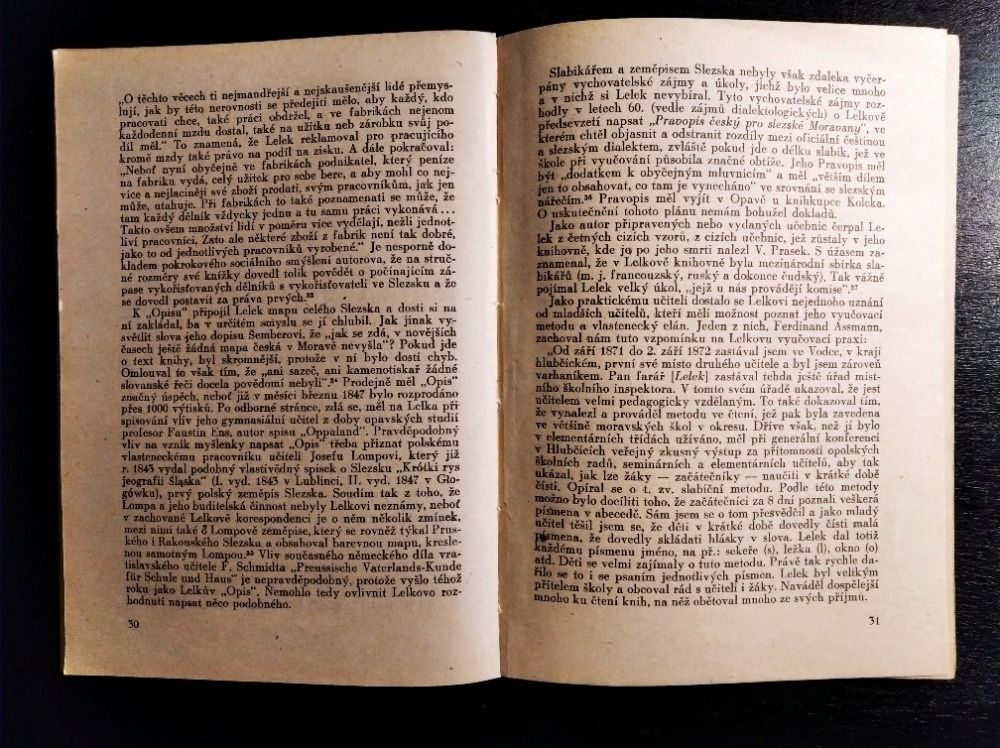 „O těchto věcech ti nejmandřejší a nejskaušenější lidé přemys-
lují, jak by této nerovnosti se předejíti mělo, aby každý, kdo
pracovati chce, také práci obdržel, a ve fabrikách nejenom
každodenní mzdu dostal, také na užitku neb zárobku svůj po-
díl měl.“ To znamená, že Lelek reklamoval pro pracujícího
kromě mzdy také právo na podíl na zisku. A dále pokračoval:
„Neboť nyní obyčejně ve fabrikách podnikatel, který peníze
na fabriku vydá, celý užitek pro sebe bere, a aby mohl co nej-
více a nejlaciněji své zboží prodati, svým pracovníkům, jak jen
může, utahuje. Při fabrikách to také poznamenati se může, že
tam každý dělník vždycky jednu a tu samu práci vykonává ...
Takto ovšem množství lidí v poměru více vydělají, nežli jednot-
liví pracovníci. Zato ale některé zboží z fabrik není tak dobré,
jako to od jednotlivých pracovníků vyrobené.“ Je nesporně do-
kladem pokrokového sociálního smýšlení autorova, že na struč-
né rozměry své knížky dovedl tolik pověděti o počínajícím zá-
pase vykořisťovaných dělníků s vykořisťovateli ve Slezsku a že
se dovedl postavit za práva prvých.³³
K „Opisu“ připojil Lelek mapu celého Slezska a dosti si na
ní zakládal, ba v určitém smyslu se jí chlubil. Jak jinak vy-
světlit slova jeho dopisu Šemberovi, že „jak se zdá, v novějších
časech ještě žádná mapa česká v Moravě nevyšla“? Pokud jde
o text knihy, byl skromnější, protože v ní bylo dosti chyb.
Omlouval to však tím, že „ani sazeč, ani kamenotiskař žádné
slovanské řeči docela povědomí nebyli“.³⁴ Prodejně měl „Opis“
značný úspěch, neboť již v měsíci březnu 1847 bylo rozprodáno
přes 1000 výtisků. Po odborné stránce, zdá se, měl na Lelka při
spisování vliv jeho gymnasiální učitel z doby opavských studií
profesor Faustin Ens, autor spisu „Oppaland“. Pravděpodobný
vliv na vznik myšlenky napsat „Opis“ třeba přiznat polskému
vlasteneckému pracovníku učiteli Josefu Lompovi, který již
r. 1843 vydal podobný vlastivědný spisek o Slezsku „Krótki rys
jeografii Sląska“ (I. vyd. 1843 v Lublinci, II. vyd. 1847 v Gło-
gówku), prvý polský zeměpis Slezska. Soudím tak z toho, že
Lompa a jeho buditelská činnost nebyly Lelkovi neznámy, neboť
v zachované Lelkově korespondenci je o něm několik zmínek,
mezi nimi také o Lompově zeměpise, který se rovněž týkal Prus-
kého i Rakouského Slezska a obsahoval barevnou mapu, kresle-
nou samotným Lompou.³⁵ Vliv současného německého díla vra-
tislavského učitele F. Schmidta „Preussische Vaterlands-Kunde
für Schule und Haus“ je nepravděpodobný, protože vyšlo téhož
roku jako Lelkův „Opis“. Nemohlo tedy ovlivnit Lelkovo roz-
hodnutí napsat něco podobného.
30
Slabikářem a zeměpisem Slezska nebyly však zdaleka vyčer-
pány vychovatelské zájmy a úkoly, jichž bylo velice mnoho
a v nichž si Lelek nevybíral. Tyto vychovatelské zájmy roz-
hodly v letech 60. (vedle zájmů dialektologických) o Lelkově
předsevzetí napsat „Pravopis český pro slezské Moravany“, ve
kterém chtěl objasnit a odstranit rozdíly mezi oficiální češtinou
a slezským dialektem, zvláště pokud jde o délku slabik, jež ve
škole při vyučování působila značné obtíže. Jeho Pravopis měl
být „dodatkem k obyčejným mluvnicím“ a měl „větším dílem
jen to obsahovat, co tam je vynecháno“ ve srovnání se slezským
nářečím.³⁶ Pravopis měl vyjít v Opavě u knihkupce Kolcka.
O uskutečnění tohoto plánu nemám bohužel dokladů.
Jako autor připravených nebo vydaných učebnic čerpal Le-
lek z četných cizích vzorů, z cizích učebnic, jež zůstaly v jeho
knihovně, kde jo po jeho smrti nalezl V. Prasek. S úžasem za-
znamenal, že v Lelkově knihovně byla mezinárodní sbírka sla-
bikářů (m. j. francouzský, ruský a dokonce čudský). Tak vážně
pojímal Lelek velký úkol, „jejž u nás provádějí komise“.³⁷
Jako praktickému učiteli dostalo se Lelkovi nejednoho uznání
od mladších učitelů, kteří měli možnost poznat jeho vyučovací
metodu a vlastenecký elán. Jeden z nich, Ferdinand Assmann,
zachoval nám tuto vzpomínku na Lelkovu vyučovací praxi:
„Od září 1871 do 2. září 1872 zastával jsem ve Vodce, v kraji
hlubčickém, první své místo druhého učitele a byl jsem zároveň
varhaníkem. Pan farář [Lelek] zastával tehda ještě úřad míst-
ního školního inspektora. V tomto svém úřadě ukazoval, že jest
učitelem velmi pedagogicky vzdělaným. To také dokazoval tím,
že vynalezl a prováděl metodu ve čtení, jež pak byla zavedena
ve většině moravských škol v okresu. Dříve však, než jí bylo
v elementárních třídách užíváno, měl při generální konferenci
v Hlubčicích veřejný zkusný výstup za přítomnosti opolských
školních radů, seminárních a elementárních učitelů, aby tak
ukázal, jak lze žáky — začátečníky — naučiti v krátké době
čísti. Opíral se o t. zv. slabiční metodu. Podle této metody
možno bylo docíliti toho, že začátečníci za 8 dní poznali veškerá
písmena v abecedě. Sám jsem se o tom přesvědčil a jako mladý
učitel těšil jsem se, že děti v krátké době dovedly čísti malá
písmena, že dovedly skládati hlásky v slova. Lelek dal totiž
každému písmenu jméno, na př.: sekeře (s), ležka (l), okno (o)
atd. Děti se velmi zajímaly o tuto metodu. Právě tak rychle da-
řilo se to i se psaním jednotlivých písmen. Lelek byl velikým
přítelem školy a obcoval rád s učiteli i žáky. Naváděl dospělejší
mnoho ku čtení knih, na něž obětoval mnoho ze svých příjmů.
31